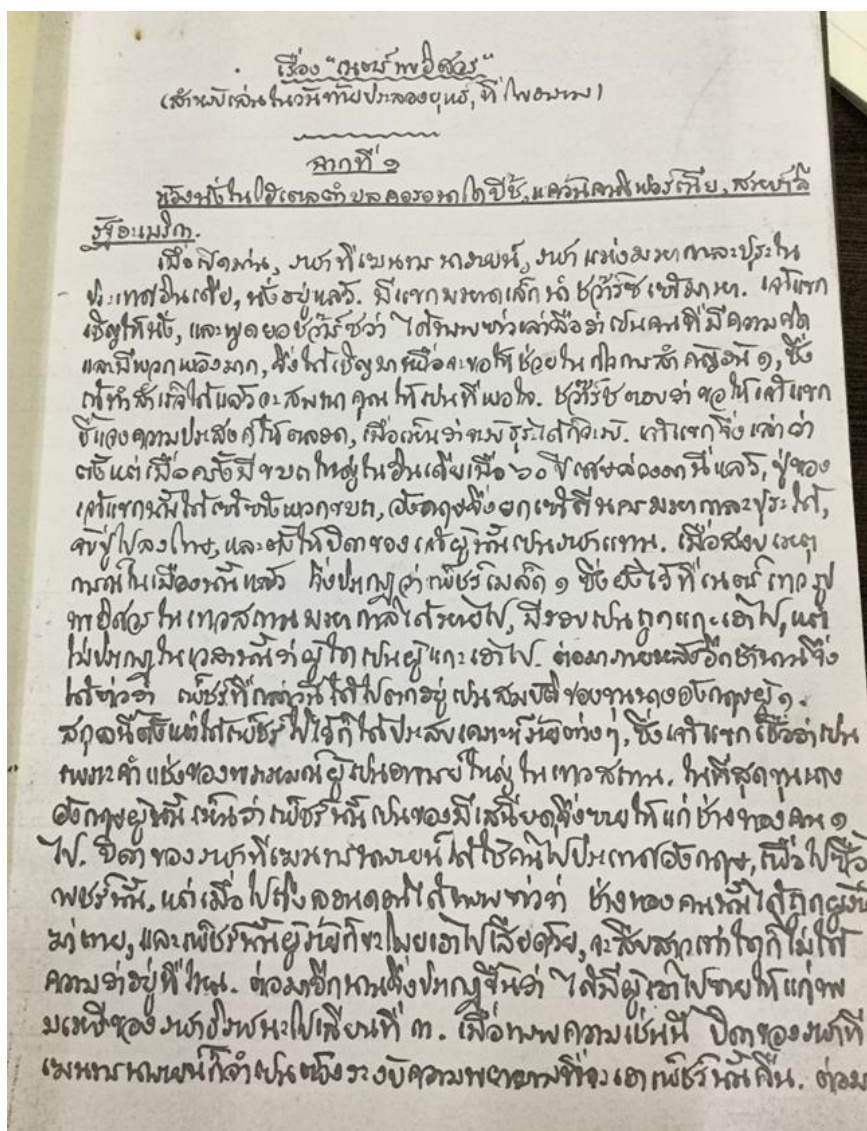 เรื่อง "เนตร์พระอิศวร"
(สำหรับเล่นในวันท้ายประลองยุทธ, ที่โพธาราม)
ฉากที่ ๑
ห้องนั่งในโฮเตลตำบลคอรอนาโดบีช, แคว้นคาลิฟอร์เนีย, สหปาลี
รัฐอะเมริกา.
เมื่อเปิดม่าน, ราชาที่เฆนทรนารายน์, ราชาแห่งมหากาละปุระใน
ประเทศอินเดีย, นั่งอยู่แล้ว. มีแขกมหาดเล็กนำชว๊าร์ซเข้ามาหา. เจ้าแขก
เชิญให้นั่ง, และพูดยอชว๊าร์ซว่า ได้ทราบข่าวเล่าลือว่าเป็นคนที่มีความคิด
และมีพวกพ้องมาก, จึ่งได้เชิญมาเพื่อจะขอให้ช่วยในกิจการสำคัญอัน ๑, ซึ่ง
ถ้าทำสำเร็จได้แล้วจะสมนาคุณให้เป็นที่พอใจ. ชว๊าร์ซตอบว่า ขอให้เจ้าแขก
ชี้แจงความประสงค์ให้ตลอด, เมื่อเห็นว่าจะรับธุระได้ก็จะรับ. เจ้าแขกจึ่งเล่าว่า
ตั้งแต่เมื่อครั้งมีขบถใหญ่ในอินเดียเมื่อ ๖๐ ปีเศษล่วงมานี่แล้ว, ปู่ของ
เจ้าแขกนั้นได้เข้าข้างพวกขบถ, อังกฤษจึ่งยกเข้าตีนครมหากาละปุระได้,
จับปู่ไปลงโทษ, และตั้งให้บิดาของเจ้าผู้นั้นเป็นราชาแทน. เมื่อสงบเหตุ
การณ์ในเมืองนั้นแล้ว จึ่งปรากฏว่าเพ็ชร์เมล็ด ๑ ซึ่งฝังไว้ที่เนตร์เทวรูป
พระอิศวรในเทวสถานมหากาลีได้หายไป, มีรอยเป็นถูกแกะเอาไป, แต่
ไม่ปรากฏในเวลานั้นว่าผู้ใดเป็นผู้แกะเอาไป. ต่อมาภายหลังอีกช้านานจึ่ง
ได้ข่าวว่า เพ็ชร์ที่กล่าวนี้ได้ไปตกอยู่เป็นสมบัติของขุนนางอังกฤษผู้ ๑.
สกุลนี้ตั้งแต่ได้เพ็ชร์ไปไว้ก็ได้ประสบเคราะห์ร้ายต่างๆ, ซึ่งเจ้าแขกเชื่อว่าเป็น
เพราะคำแช่งของพราหมณ์ผู้เป็นอาจารย์ใหญ่ในเทวสถาน. ในที่สุดขุนนาง
อังกฤษผู้นั้นเห็นว่าเพ็ชร์นั้นเป็นของมีเสนียด, จึ่งขายให้แก่ช่างทองคน ๑
ไป. บิดาของราชาที่เฆนทรนารายน์ได้ใช้คนไปประเทศอังกฤษ, เพื่อไปซื้อ
เพชร์นั้น, แต่เมื่อไปถึงลอนดอนได้ทราบข่าวว่า ช่างทองคนนั้นได้ถูกผู้ร้าย
ฆ่าตาย, และเพ็ชร์นั้นผู้ร้ายก็ขะโมยเอาไปเสียด้วย, จะสืบสาวเท่าใดก็ไม่ได้
ความว่าอยู่ที่ไหน. ต่อมาอีกนานจึ่งปรากฏขึ้นว่า ได้มีผู้เอาไปขายให้แก่พระ
มเหษีของราชาธิราชนะโปเลียนที่ ๓. เมื่อทราบความเช่นนี้ บิดาของราชาที
เฆนทรนารายน์ก็จำเป็นต้องระงับความพยายามที่จะเอาเพ็ชร์นั้นคืน. ต่อมา